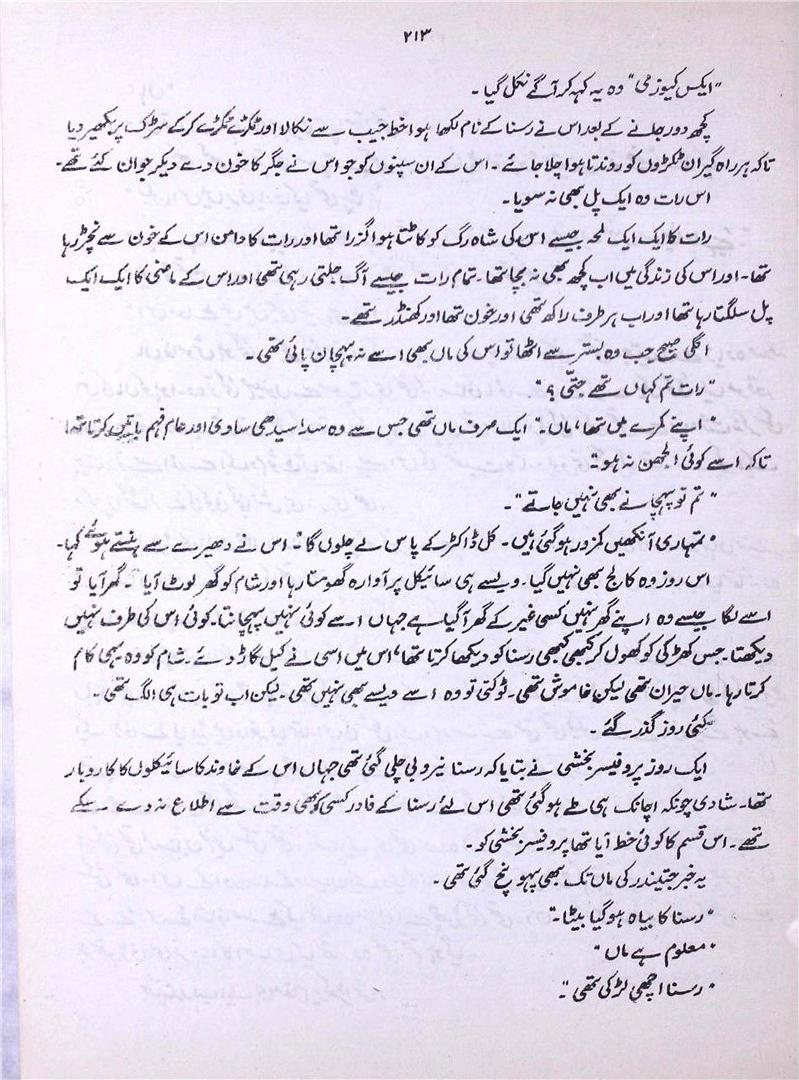 ۲۱۳
"ایکس کیوز می" وہ یہ کہہ کر آگے نکل گیا۔
کچھ دور جانے کے بعد اس نے رسنا کے نام لکھا ہوا خط جیب سے نکالا اور ٹکڑے ٹکڑے کر کے سڑک پر بکھیر دیا
تاکہ ہر راہ گیر ان ٹکڑوں کو روندتا ہوا چلا جائے۔ اس کے ان سپنوں کو جو اس نے جگر کا خون دے دیکر جوان کئے تھے۔
اس رات وہ ایک پل بھی نہ سویا۔
رات کا ایک ایک لمحہ جیسے اس کی شاہ رگ کو کاٹتا ہوا گزرا تھا اور رات کا دامن اس کے خون سے نچڑ رہا
تھا۔ اور اس کی زندگی میں اب کچھ بھی نہ بچا تھا۔ تمام رات جیسے آگ جلتی رہی تھی اور اس کے ماضی کا ایک ایک
پل سلگتا رہا تھا اور اب ہر طرف راکھ تھی اور خون تھا اور کھنڈر تھے۔
اگلی صبح جب وہ بستر سے اٹھا تو اس کی ماں بھی اسے نہ پہچان پائی تھی۔
"رات تم کہاں تھے جتّی؟"
"اپنے کمرے میں تھا، ماں۔" ایک صرف ماں تھی جس سے وہ سدا سیدھی سادی اور عام فہم باتیں کرتا تھا
تاکہ اسے کوئی الجھن نہ ہو۔
"تم تو پہچانے بھی نہیں جاتے"۔
"تمہاری آنکھیں کمزور ہو گئی ہیں۔ کل ڈاکٹر کے پاس لے چلوں گا"۔ اس نے دھیرے سے ہنستے ہوئے کہا۔
اس روز وہ کالج بھی نہیں گیا۔ ویسے ہی سائیکل پر آوارہ گھومتا رہا اور شام کو گھر لوٹ آیا۔ گھر آیا تو
اسے لگا جیسے وہ اپنے گھر نہیں کسی غیر کے گھر آگیا ہے جہاں اسے کوئی نہیں پہچانتا۔ کوئی اس کی طرف نہیں
دیکھتا۔ جس کھڑکی کو کھول کر کبھی کبھی رسنا کو دیکھا کرتا تھا، اس میں اسی نے کیل گاڑ دئے۔ شام کو وہ یہی کام
کرتا رہا۔ ماں حیران تھی لیکن خاموش تھی۔ ٹوکتی تو وہ اسے ویسے بھی نہیں تھی۔ لیکن اب تو بات ہی الگ تھی۔
کئی روز گذر گئے۔
ایک روز پروفیسر بخشی نے بتایا کہ رسنا نیروبی چلی گئی تھی جہاں اس کے خاوند کا سائیکلوں کا کاروبار
تھا۔ شادی چونکہ اچانک ہی طے ہو گئی تھی اس لئے رسنا کے فادر کسی کو بھی وقت سے اطلاع نہ دے سکے
تھے۔ اس قسم کا کوئی خط آیا تھا پروفیسر بخشی کو۔
یہ خبر جتیندر کی ماں تک بھی پہونچ گئی تھی۔
"رسنا کا بیاہ ہو گیا بیٹا۔"
"معلوم ہے ماں"
"رسنا اچھی لڑکی تھی"۔